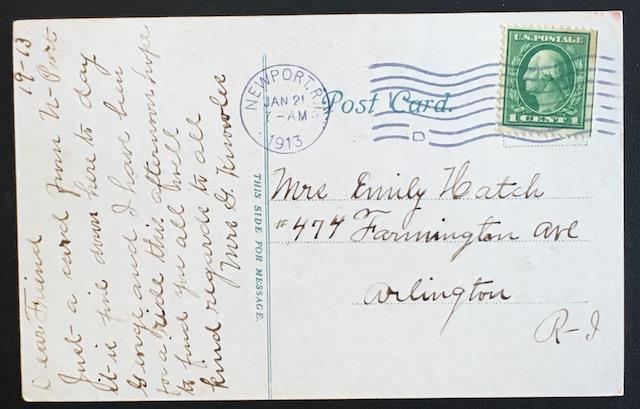 19-13
Dear Friend
Just a card from N-Port
it is fine down here to day
George and I have been
for a ride this afternoon hope
to find you all well
kind regards to all
Mrs G. Knowles
THIS SIDE FOR MESSAGE.
NEWPORT, R.I.
JAN 21
7-AM
1913
Post Card.
U.S. POSTAGE
1 CENT 1
Mrs Emily Hatch
#474 Farmington Ave
Arlington
R-I